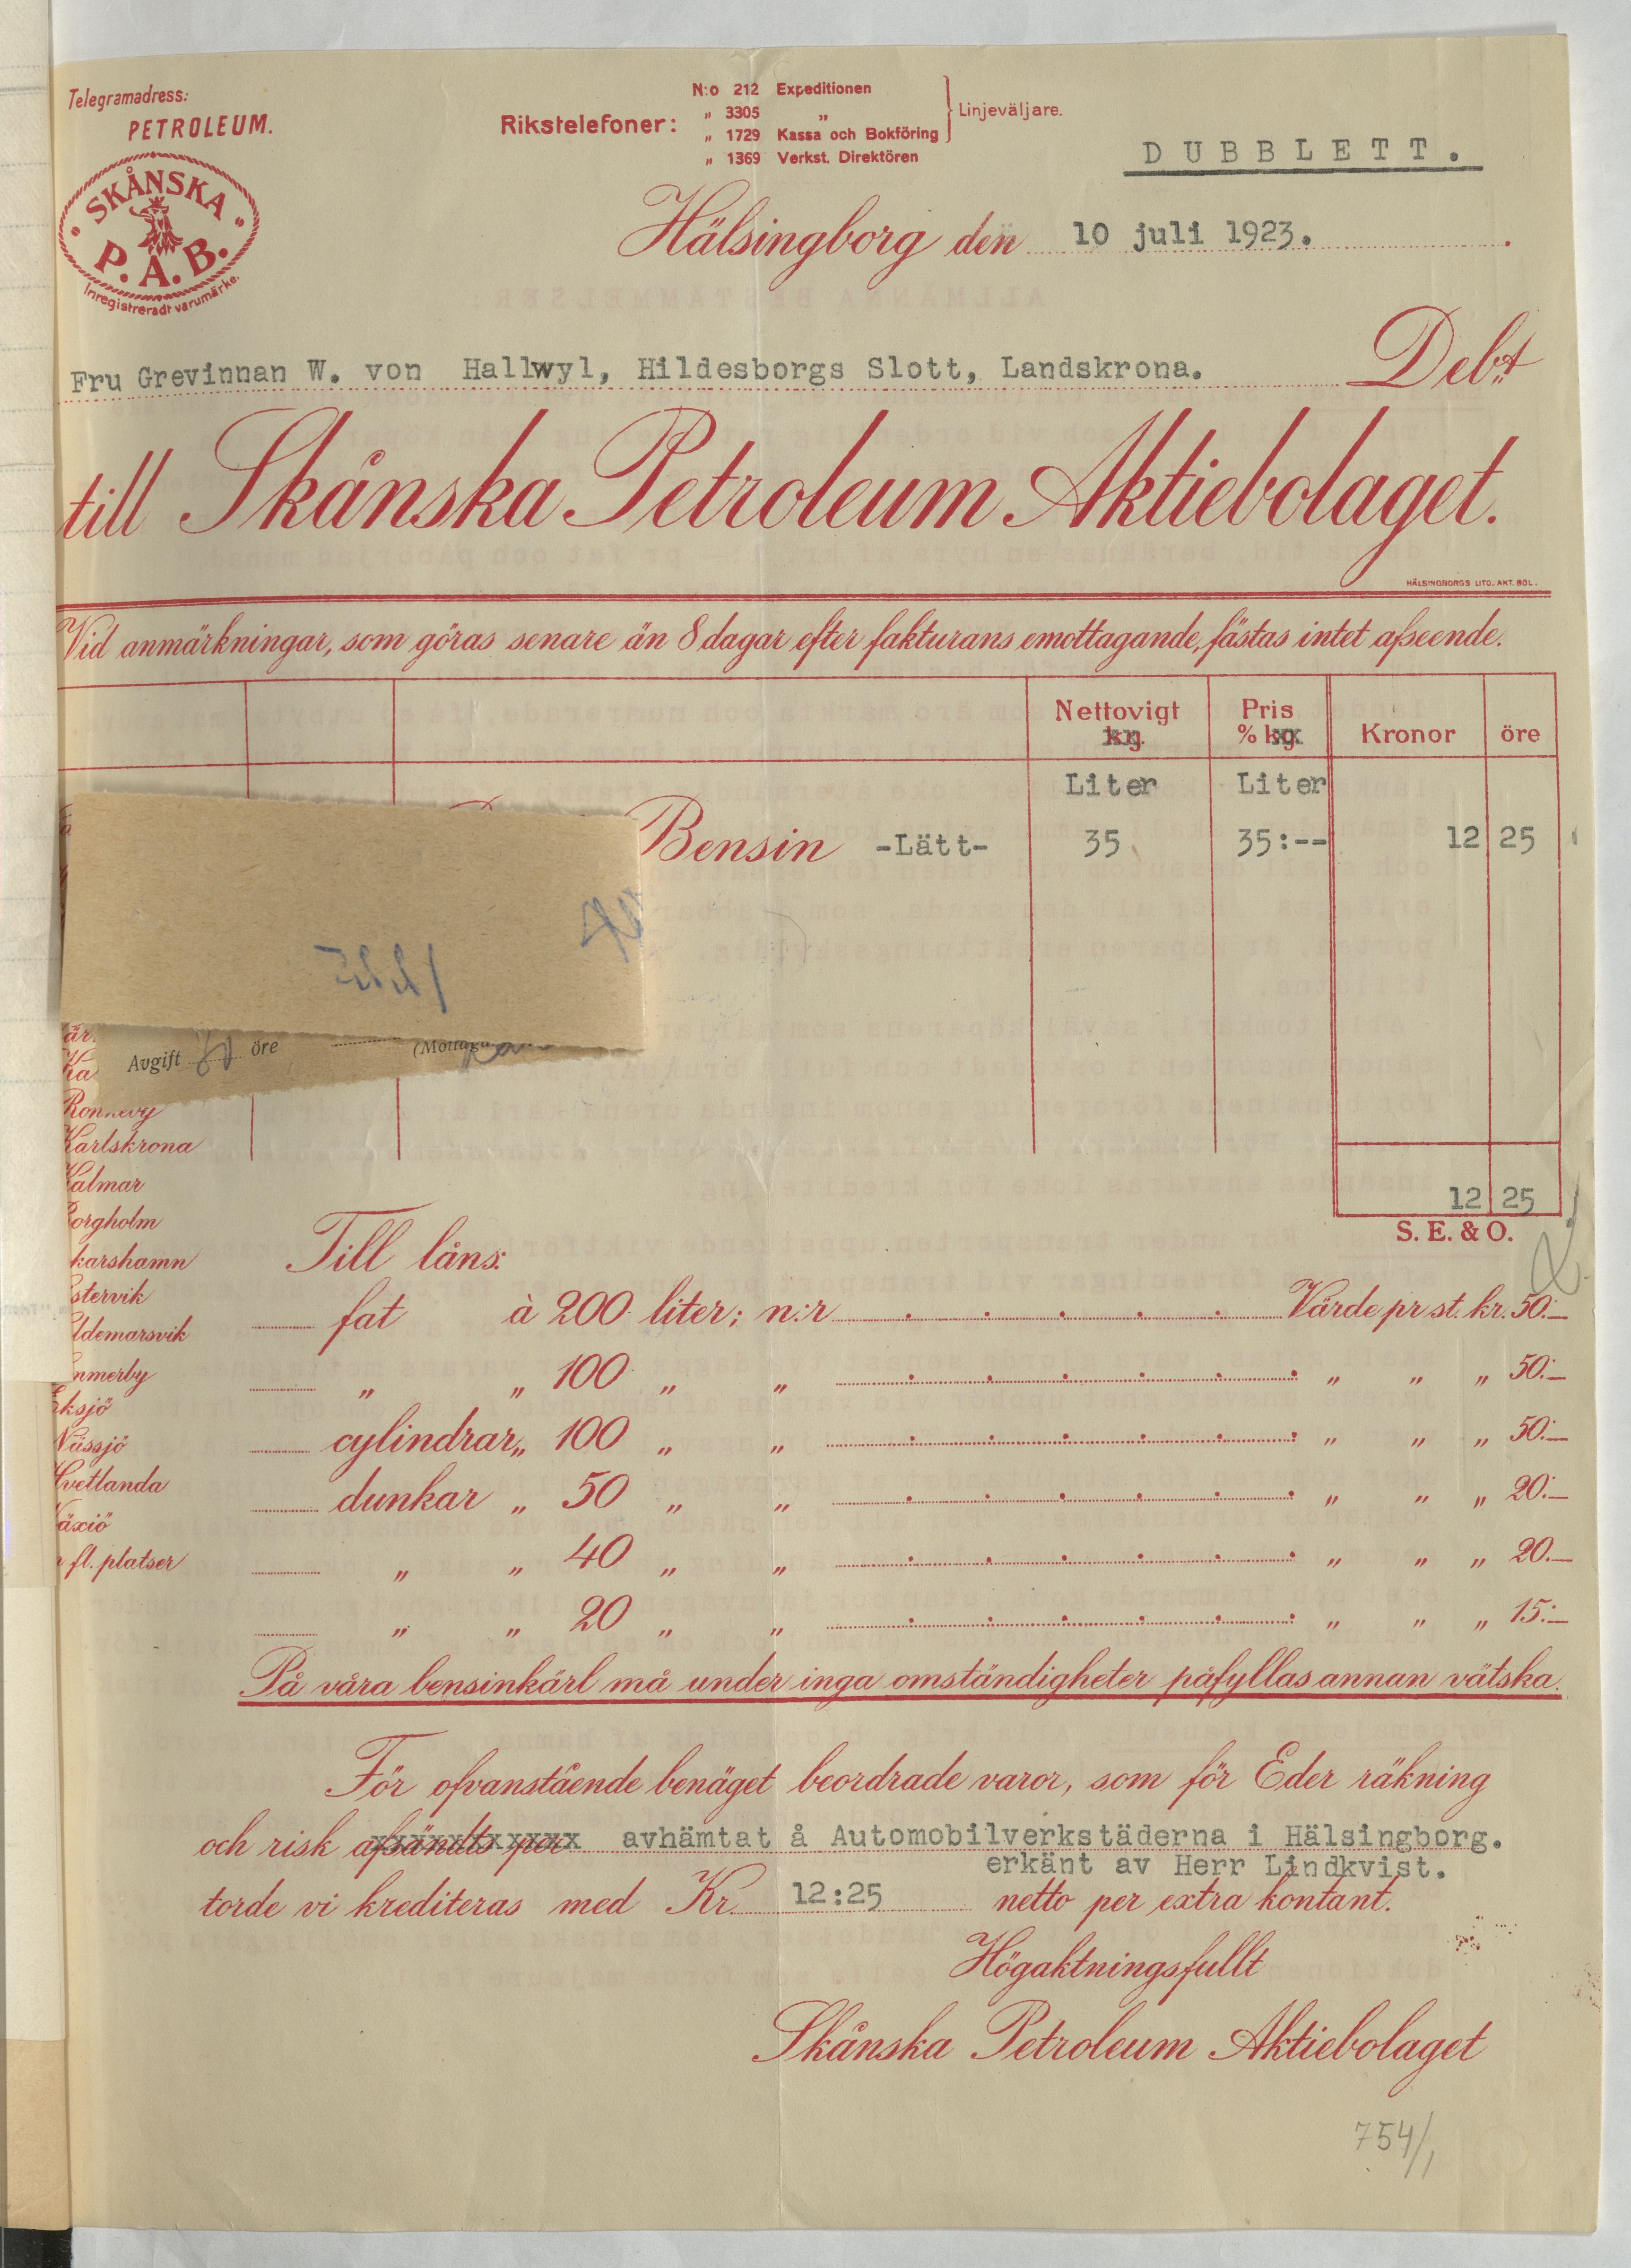 Telegramadress:
PETROLEUM.
SKÅNSKA
P. A. B.
Inregistreradt varumärke.
Rikstelefoner:
N:o 212 Expeditionen
„ 3305 „
„ 1729 Kassa och Bokföring
„ 1369 Verkst. Direktören
Linjeväljare.
DUBBLETT.
Hälsingborg den 10 juli 1923.
Fru Grevinnan W. von Hallwyl, Hildesborgs Slott, Landskrona. Deb:t
till Skånska Petroleum Aktiebolaget.
HÄLSINGBORGS LITO. AKT. BOL.
Vid anmärkningar, som göras senare än 8 dagar efter fakturans emottagande, fästas intet afseende.
Nettovigt kg. Pris % kg. Kronor öre
Liter Liter
Bensin -Lätt- 35 35:-- 12 25
Avgift öre
Ronneby
Karlskrona
Kalmar
Borgholm
12 25
S. E. & O.
karshamn
stervik
ldemarsvik
mmerby
Eksjö
Nässjö
Hvetlanda
Växiö
fl. platser
Till låns:
fat à 200 liter; n:r Värde pr st. kr. 50:—
„ „ 100 „ „ „ „ „ 50:—
cylindrar „ 100 „ „ „ „ „ 50:—
dunkar „ 50 „ „ „ „ „ 20:—
„ „ 40 „ „ „ „ „ 20:—
„ „ 20 „ „ „ „ „ 15:—
På våra bensinkärl må under inga omständigheter påfyllas annan vätska.
För ofvanstående benäget beordrade varor, som för Eder räkning
och risk afsändts per avhämtat å Automobilverkstäderna i Hälsingborg.
erkänt av Herr Lindkvist.
torde vi krediteras med Kr. 12:25 netto per extra kontant.
Högaktningsfullt
Skånska Petroleum Aktiebolaget
754/1